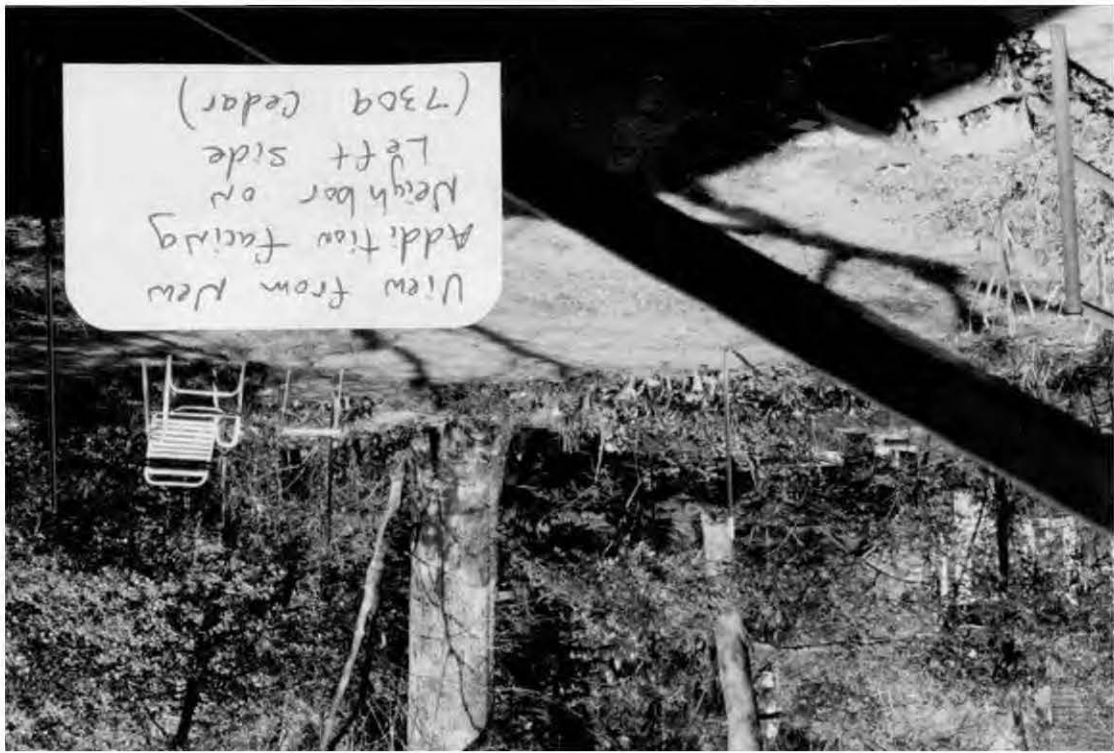 View from New
Addition facing
Neighbor on
Left side
(7309 Cedar)